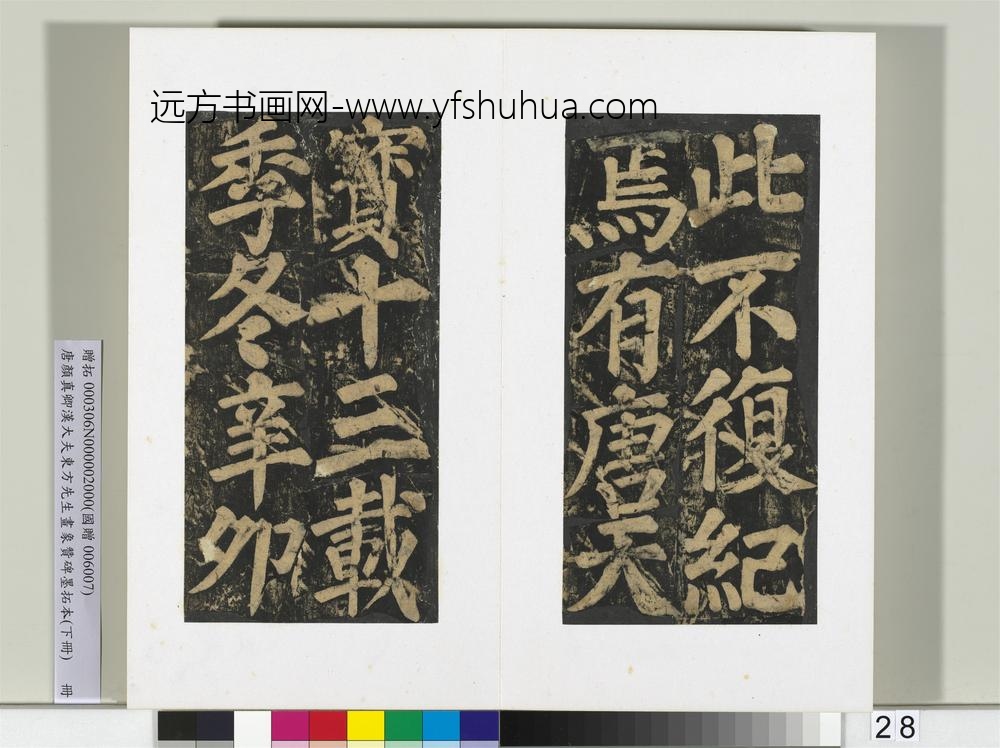 远方书画网-www.yfshuhua.com
此不復紀
焉有唐天
寶十三載
季冬辛卯
贈拓 000306N000002000(國贈 006007)
唐顏真卿漢大夫東方先生畫象贊碑墨拓本(下冊) 冊
28